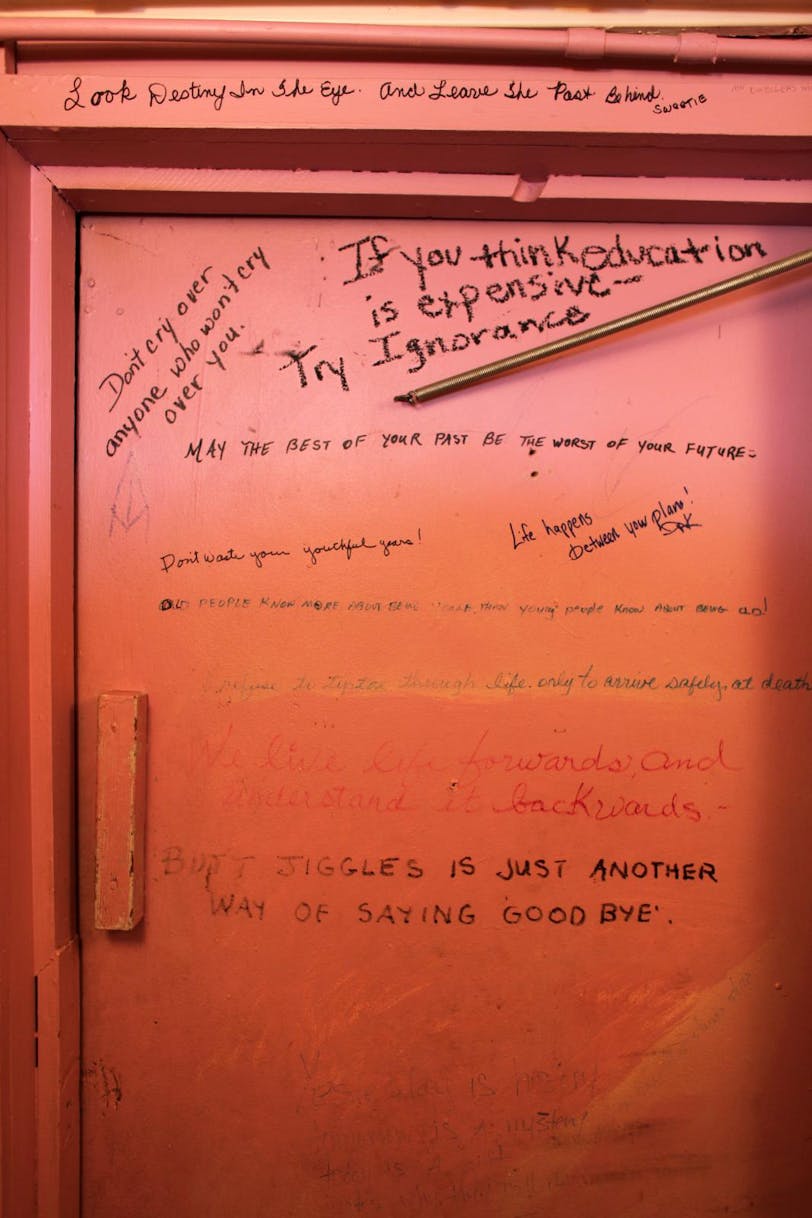 Look Destiny In The Eye. And Leave The Past Behind.
SWEETIE
If you think education
is expensive--
Try Ignorance
Don't cry over
anyone who won't cry
over you.
MAY THE BEST OF YOUR PAST BE THE WORST OF YOUR FUTURE-
Life happens
between your plans!
Don't waste your youthful years!
OLD PEOPLE KNOW MORE ABOUT BEING YOUNG, THAN YOUNG people KNOW ABOUT BEING OLD!
I refuse to tiptoe through life only to arrive safely, at death
We live life forwards, and
understand it backwards.-
BUTT JIGGLES IS JUST ANOTHER
WAY OF SAYING 'GOOD BYE'.
IS
IS A MYSTERY
today is A